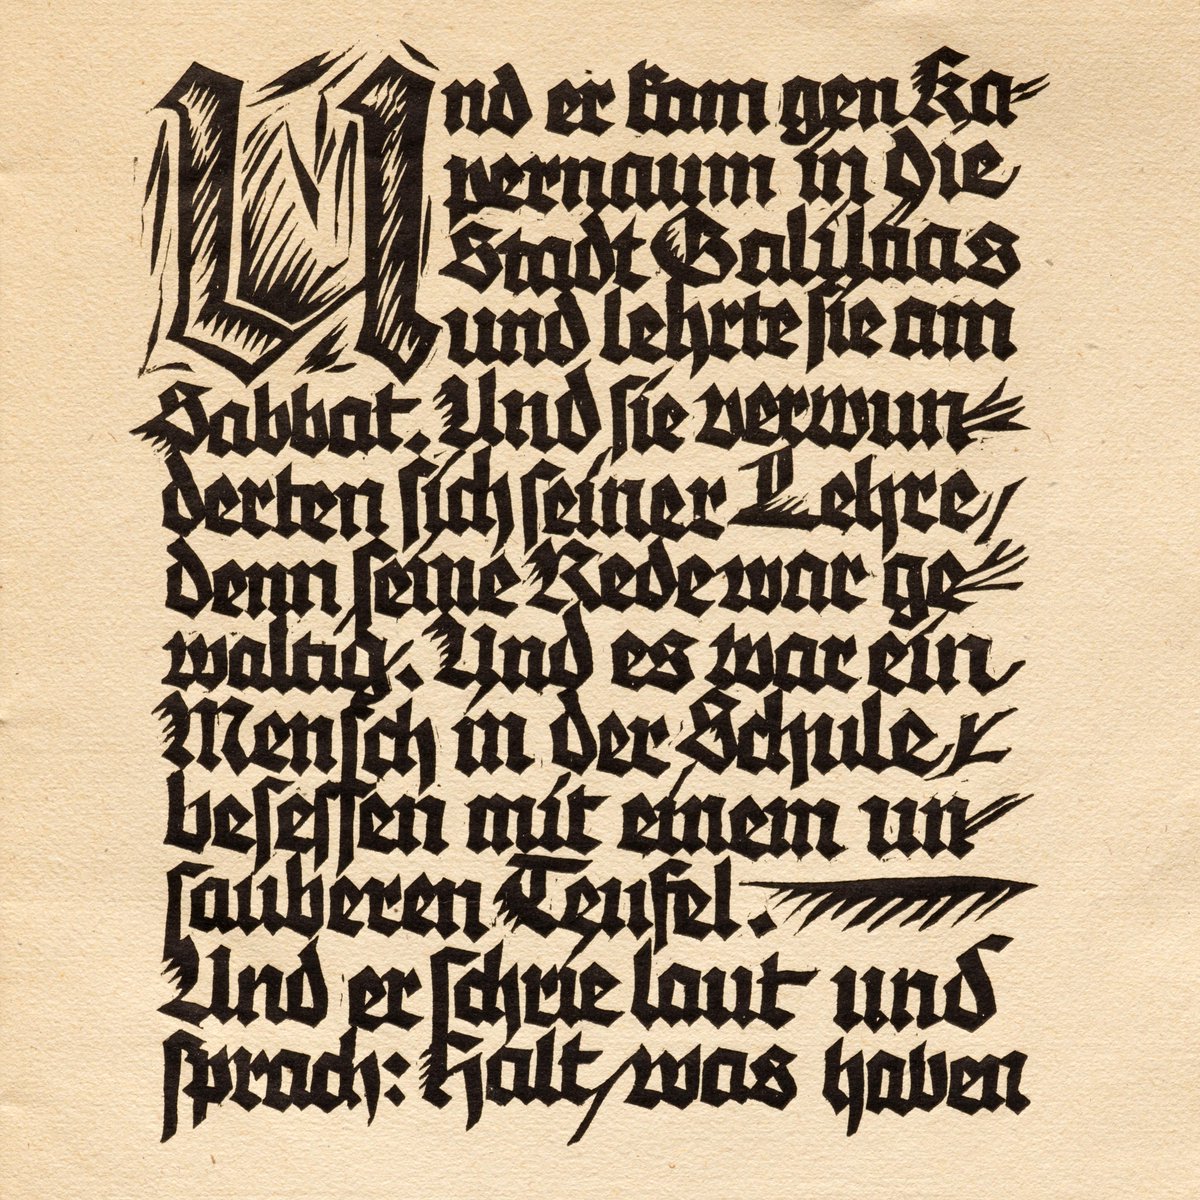 Und er kam gen Ka-
pernaum in die
Stadt Galiläas
und lehrte sie am
Sabbat. Und sie verwun-
derten sich seiner Lehre/
denn seine Rede war ge-
waltig. Und es war ein
Mensch in der Schule/
besessen mit einem un-
sauberen Teufel.
Und er schrie laut und
sprach: Halt/ was haben